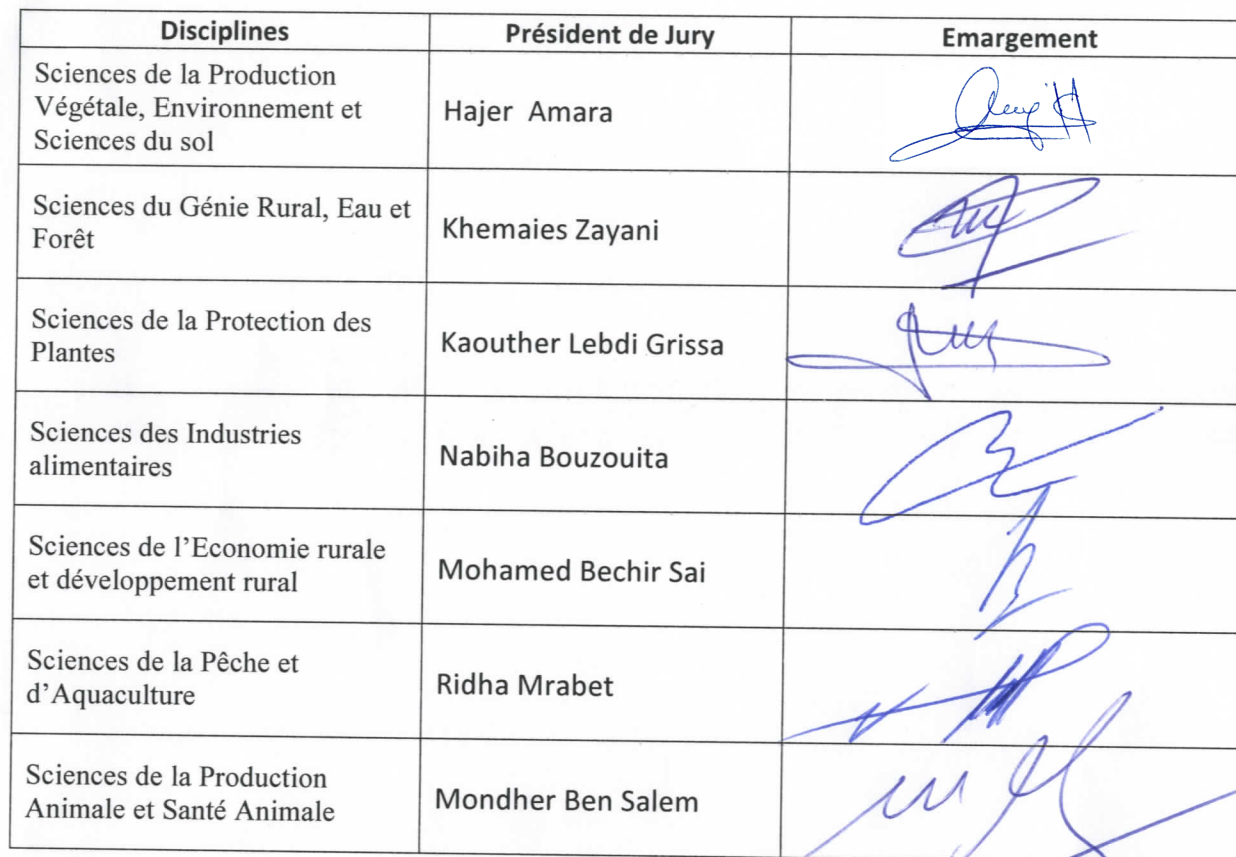 Disciplines Président de Jury Emargement
Sciences de la Production
Végétale, Environnement et
Sciences du sol
Hajer Amara
Sciences du Génie Rural, Eau et
Forêt
Khemaies Zayani
Sciences de la Protection des
Plantes
Kaouther Lebdi Grissa
Sciences des Industries
alimentaires
Nabiha Bouzouita
Sciences de l’Economie rurale
et développement rural
Mohamed Bechir Sai
Sciences de la Pêche et
d’Aquaculture
Ridha Mrabet
Sciences de la Production
Animale et Santé Animale
Mondher Ben Salem